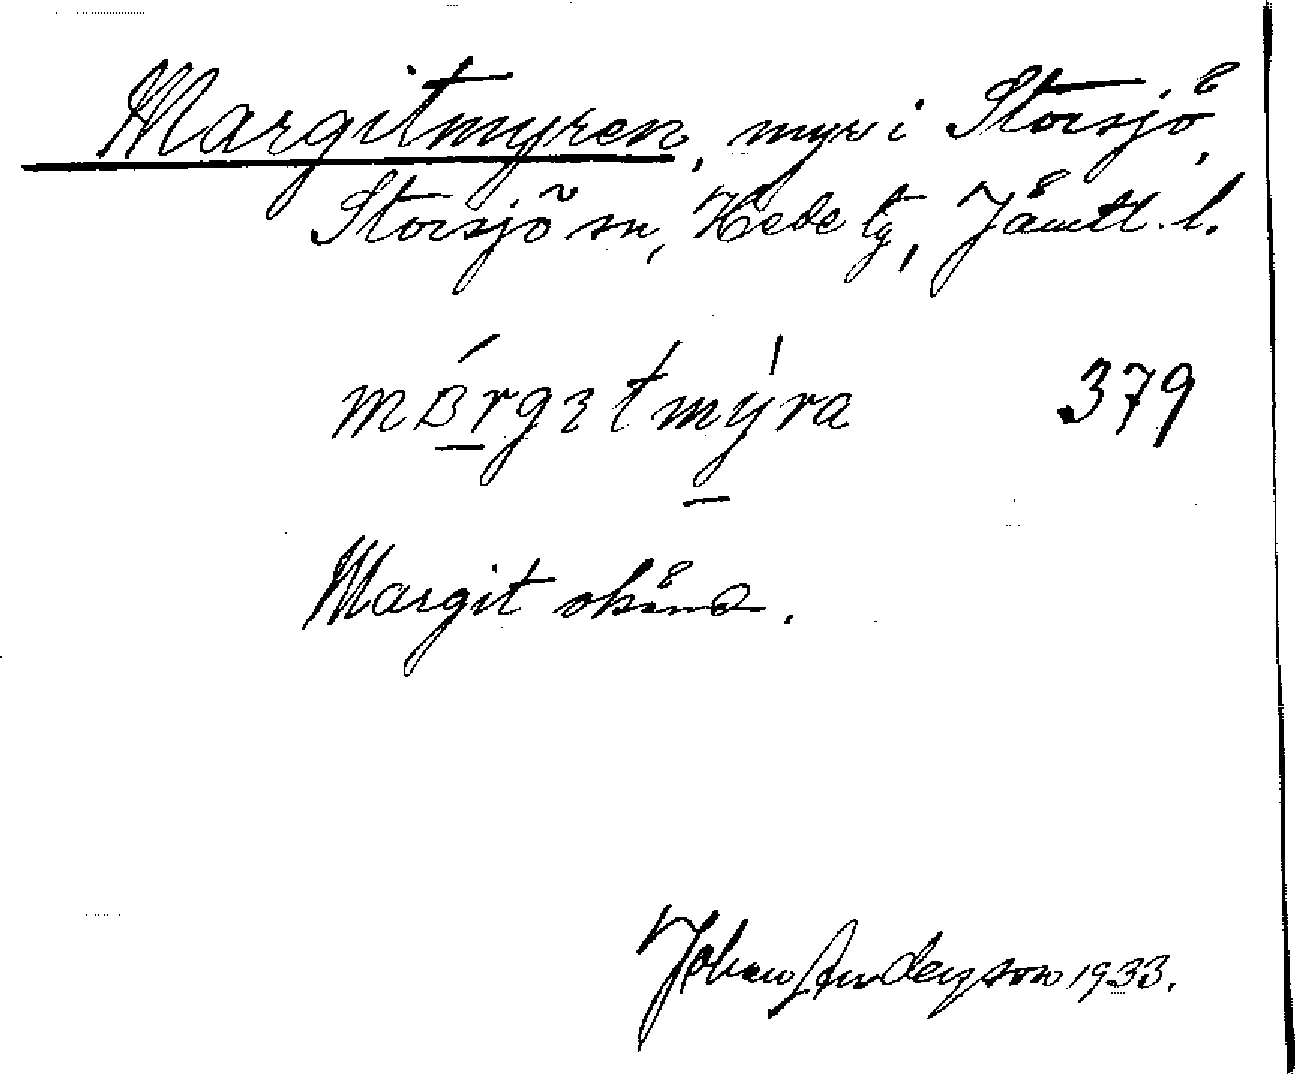 Margitmyren, myr i Storsjö,
Storsjö sn, Hede tg, Jämtl. l.
márgıtmýra 379
Margit okänd.
Johan Anderson 1933.